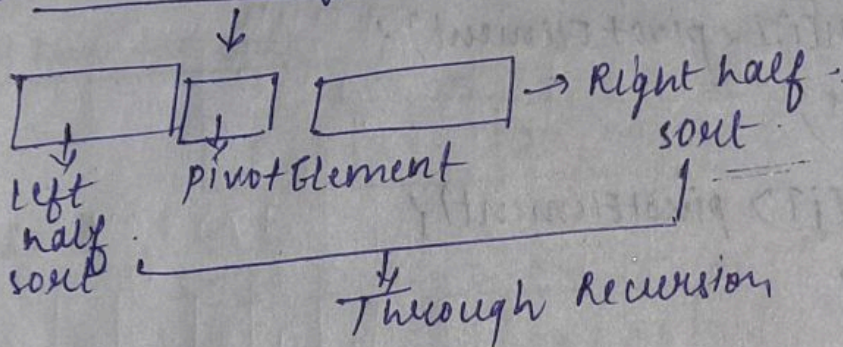 → Right half
sort
left
half
sort
pivotElement
Through Recursion